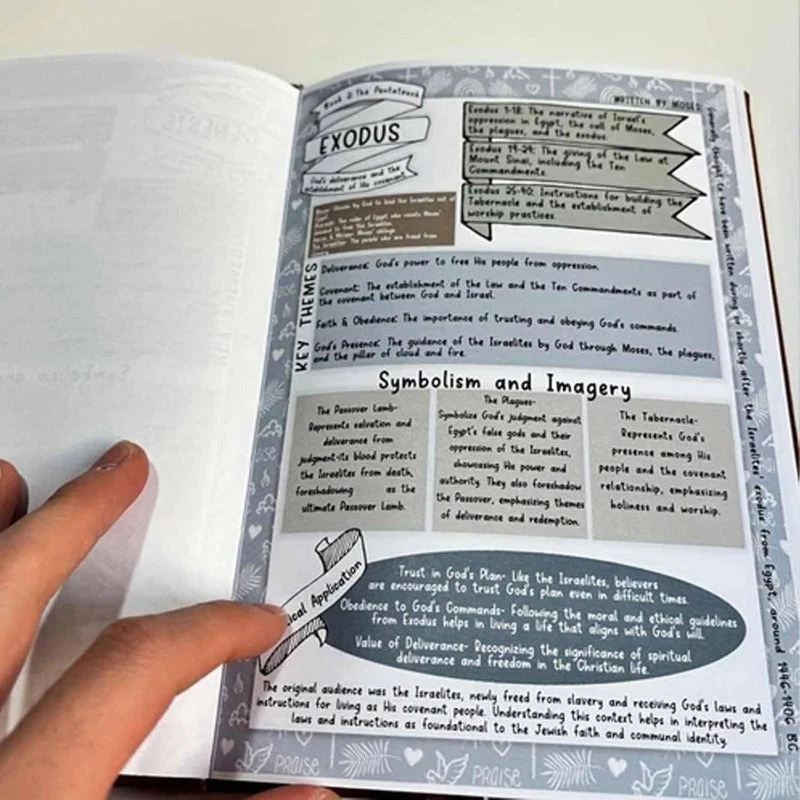 Book 2: The Pentateuch
EXODUS
God's deliverance and the
establishment of His covenant
WRITTEN BY MOSES
Exodus 1-18: The narrative of Israel's
oppression in Egypt, the call of Moses,
the plagues, and the exodus.
Exodus 19-24: The giving of the Law at
Mount Sinai, including the Ten
Commandments.
Exodus 25-40: Instructions for building the
Tabernacle and the establishment of
worship practices.
Moses: Chosen by God to lead the Israelites out of
Egypt
Pharaoh: The ruler of Egypt who resists Moses'
demand to free the Israelites
Aaron & Miriam: Moses' siblings
The Israelites: The people who are freed from
KEY THEMES
Deliverance: God's power to free His people from oppression.
Covenant: The establishment of the Law and the Ten Commandments as part of
the covenant between God and Israel.
Faith & Obedience: The importance of trusting and obeying God's commands.
God's Presence: The guidance of the Israelites by God through Moses, the plagues,
and the pillar of cloud and fire.
Symbolism and Imagery
The Passover Lamb-
Represents salvation and
deliverance from
judgment-its blood protects
the Israelites from death,
foreshadowing as the
ultimate Passover Lamb.
The Plagues-
Symbolize God's judgment against
Egypt's false gods and their
oppression of the Israelites,
showcasing His power and
authority. They also foreshadow
the Passover, emphasizing themes
of deliverance and redemption.
The Tabernacle-
Represents God's
presence among His
people and the covenant
relationship, emphasizing
holiness and worship.
ical Application
-Trust in God's Plan- Like the Israelites, believers
are encouraged to trust God's plan even in difficult times.
Obedience to God's Commands- Following the moral and ethical guidelines
from Exodus helps in living a life that aligns with God's will.
Value of Deliverance- Recognizing the significance of spiritual
deliverance and freedom in the Christian life.
The original audience was the Israelites, newly freed from slavery and receiving God's laws and
instructions for living as His covenant people. Understanding this context helps in interpreting the
laws and instructions as foundational to the Jewish faith and communal identity.
Generally thought to have been written during or shortly after the Israelites' exodus from Egypt, around 1446-1406 BC
PRAISE
PRAISE
PRAISE